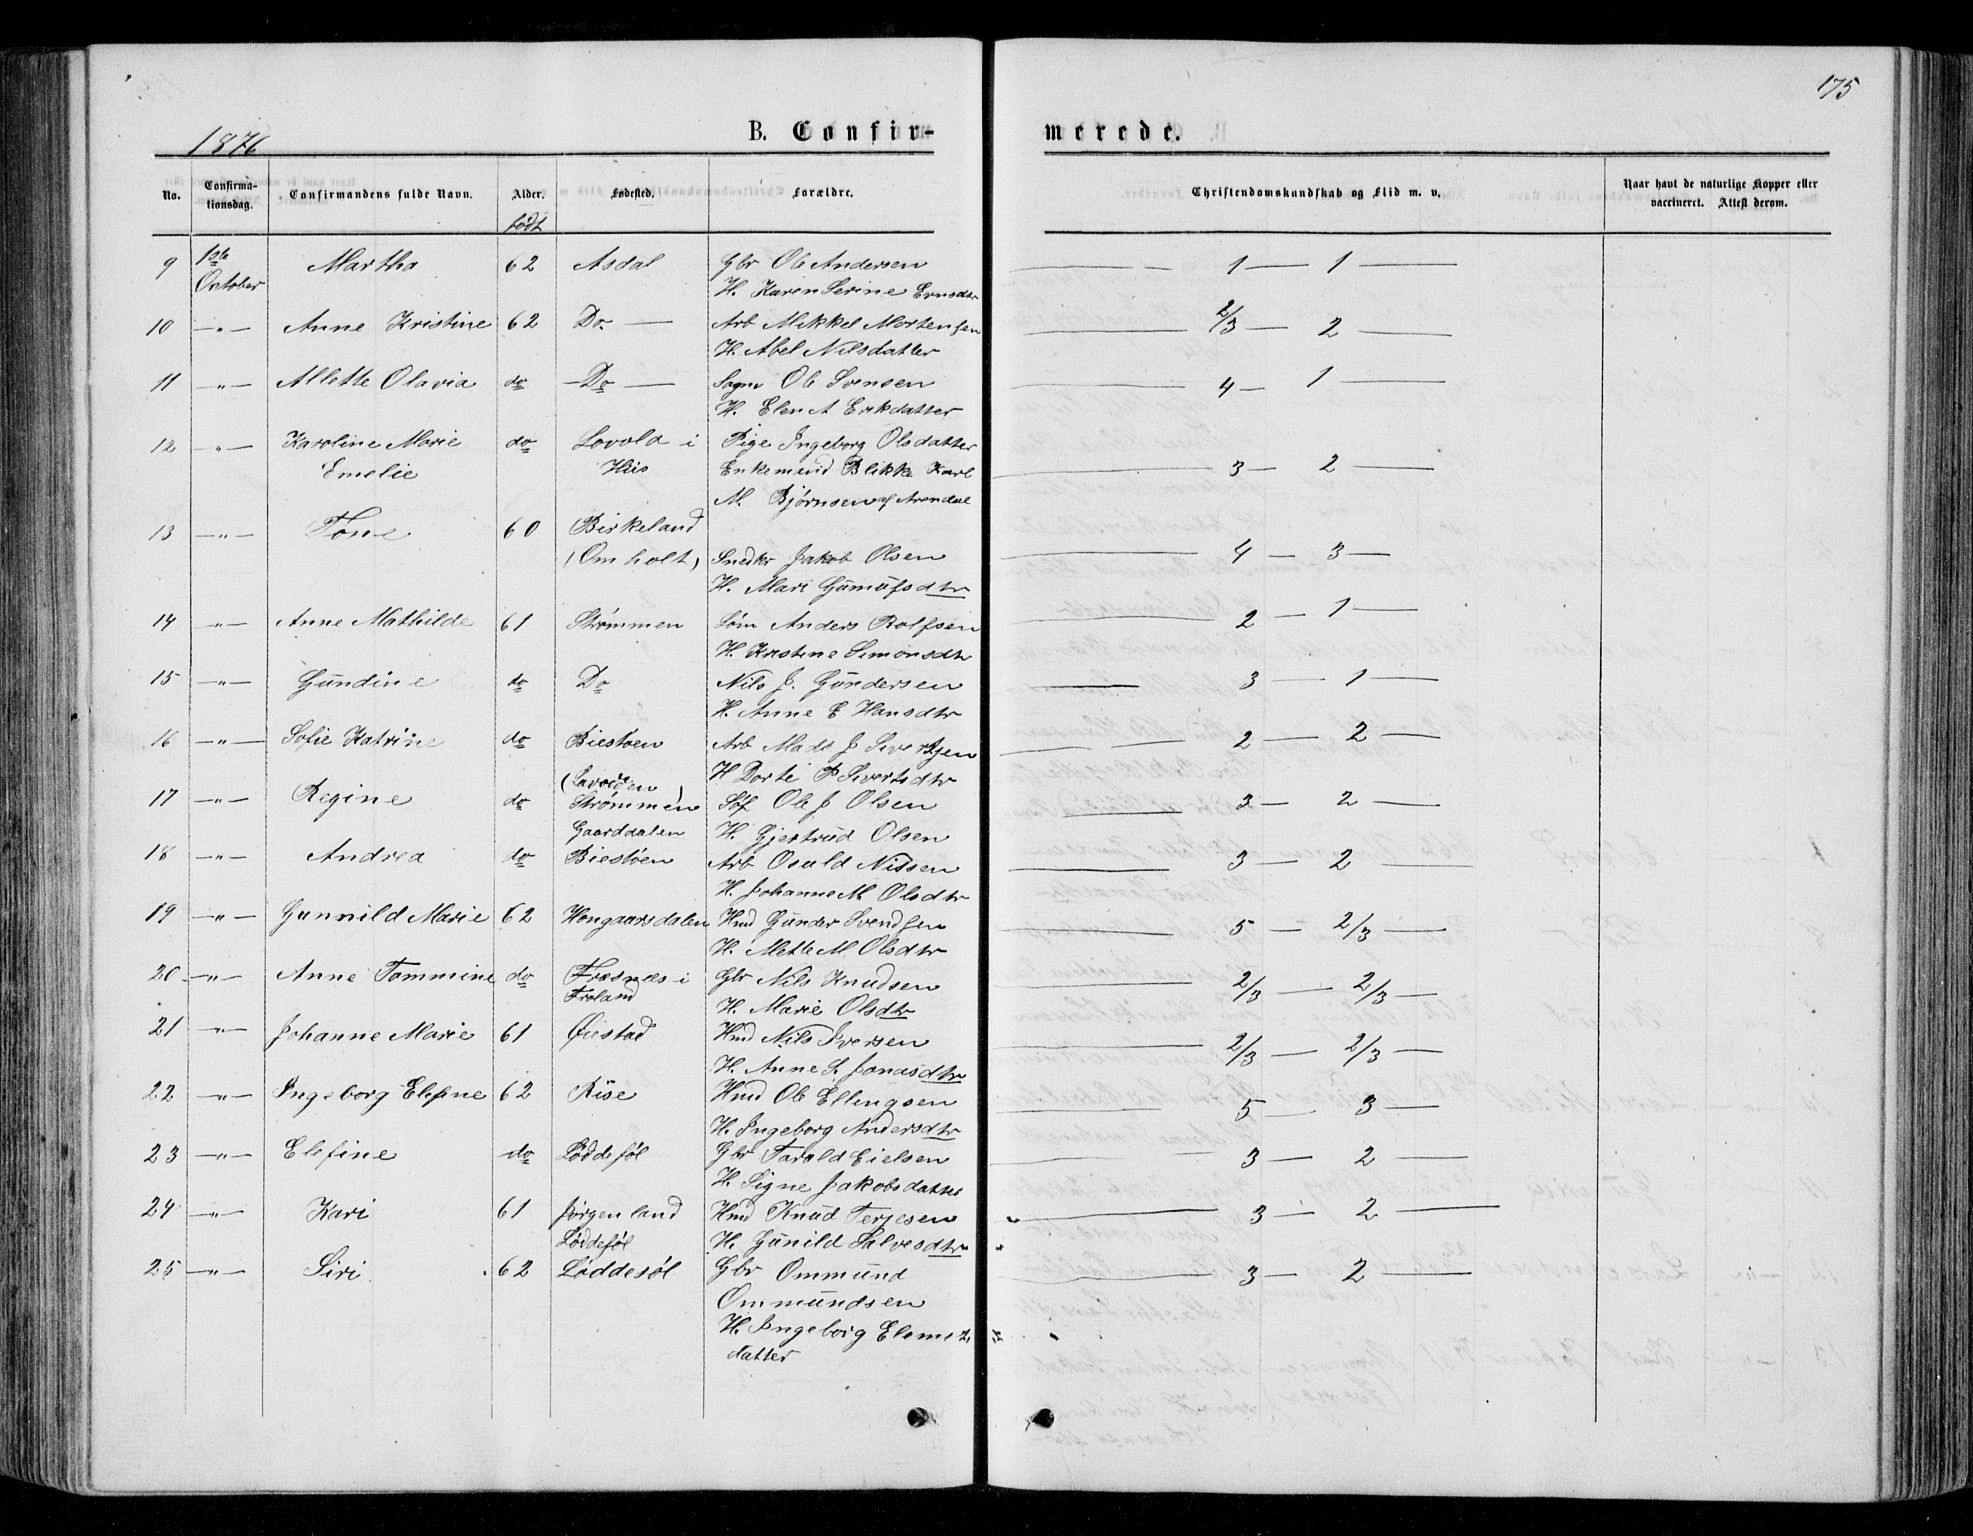 175
1876
B. Confir- merede.
No. Confirma-tionsdag. Confirmandens fulde Navn. Alder. Fødested. Forældre. Christendomskundskab og Flid m. v. Naar havt de naturlige Kopper eller vaccineret. Attest derom.
født
9 1ste Martha 62 Asdal Gbr Ole Andersen 1 — 1
October H. Karen Serine Evnsdtr
10 —„— Anne Kristine 62 Do. Arb Mikkel Mortensen 2/3 — 2
H. Abel Nilsdatter
11 —„— Allette Olavia do Do Sagm Ole Svensen 4 — 1
H. Elen A Erikdatter
12 —„— Karoline Marie do Lovold i Pige Ingeborg Olsdatter
Emelie Hiis Enkemand Blikke Karl 3 — 2
M. Bjørnsen af Arendal
13 —„— Tone 60 Birkeland
(Omholt) Snedkr Jakob Olsen 4 — 3
H. Mari Gumufsdtr
14 —„— Anne Mathilde 61 Strømmen Søm Anders Rolfsen 2 — 1
H. Kristine Simonsdtr
15 —„— Gundine do Do Nils J. Gundersen 3 — 1
H. Anne E Hansdtr
16 —„— Sofie Katrine do Biestøen Arb Mads J Sivertsen 2 — 2
H Dorte P Sivertsdtr
17 —„— Regine do Strømmen Søf Ole J Olsen 3 — 2
Gaarddalen H. Gjertrud Olsen
18 —„— Andrea do Biestøen Arb Osuld Nilsen 3 — 2
H. Johanne M. Olsdtr
19 —„— Gunnild Marie 62 Hongaarsdalen Hmd Gunder Svendsen 5 — 2/3
H. Mette M. Olsdtr
20 —„— Anne Tommine do Fresnes i Gbr Nils Knudsen 2/3 — 2/3
Froland H. Marie Olsdtr
21 —„— Johanne Marie 61 Øiestad Hmd Nils Iversen 2/3 — 2/3
H. Anne S. Jonasdtr
22 —„— Ingeborg Elefine 62 Rise Hmd Ole Ellingsen 5 — 3
H. Ingeborg Andersdtr
23 —„— Elefine do Løddesøl Gbr Tarald Eielsen 3 — 2
H. Signe Jakobsdatter
24 —„— Kari 61 Jørgenland Hmd Knud Terjesen 3 — 2
Løddesøl H. Gunild Salvesdtr
25 —„— Siri 62 Løddesøl Gbr Ommund 3 — 2
Ommundsen
H. Ingeborg
datter